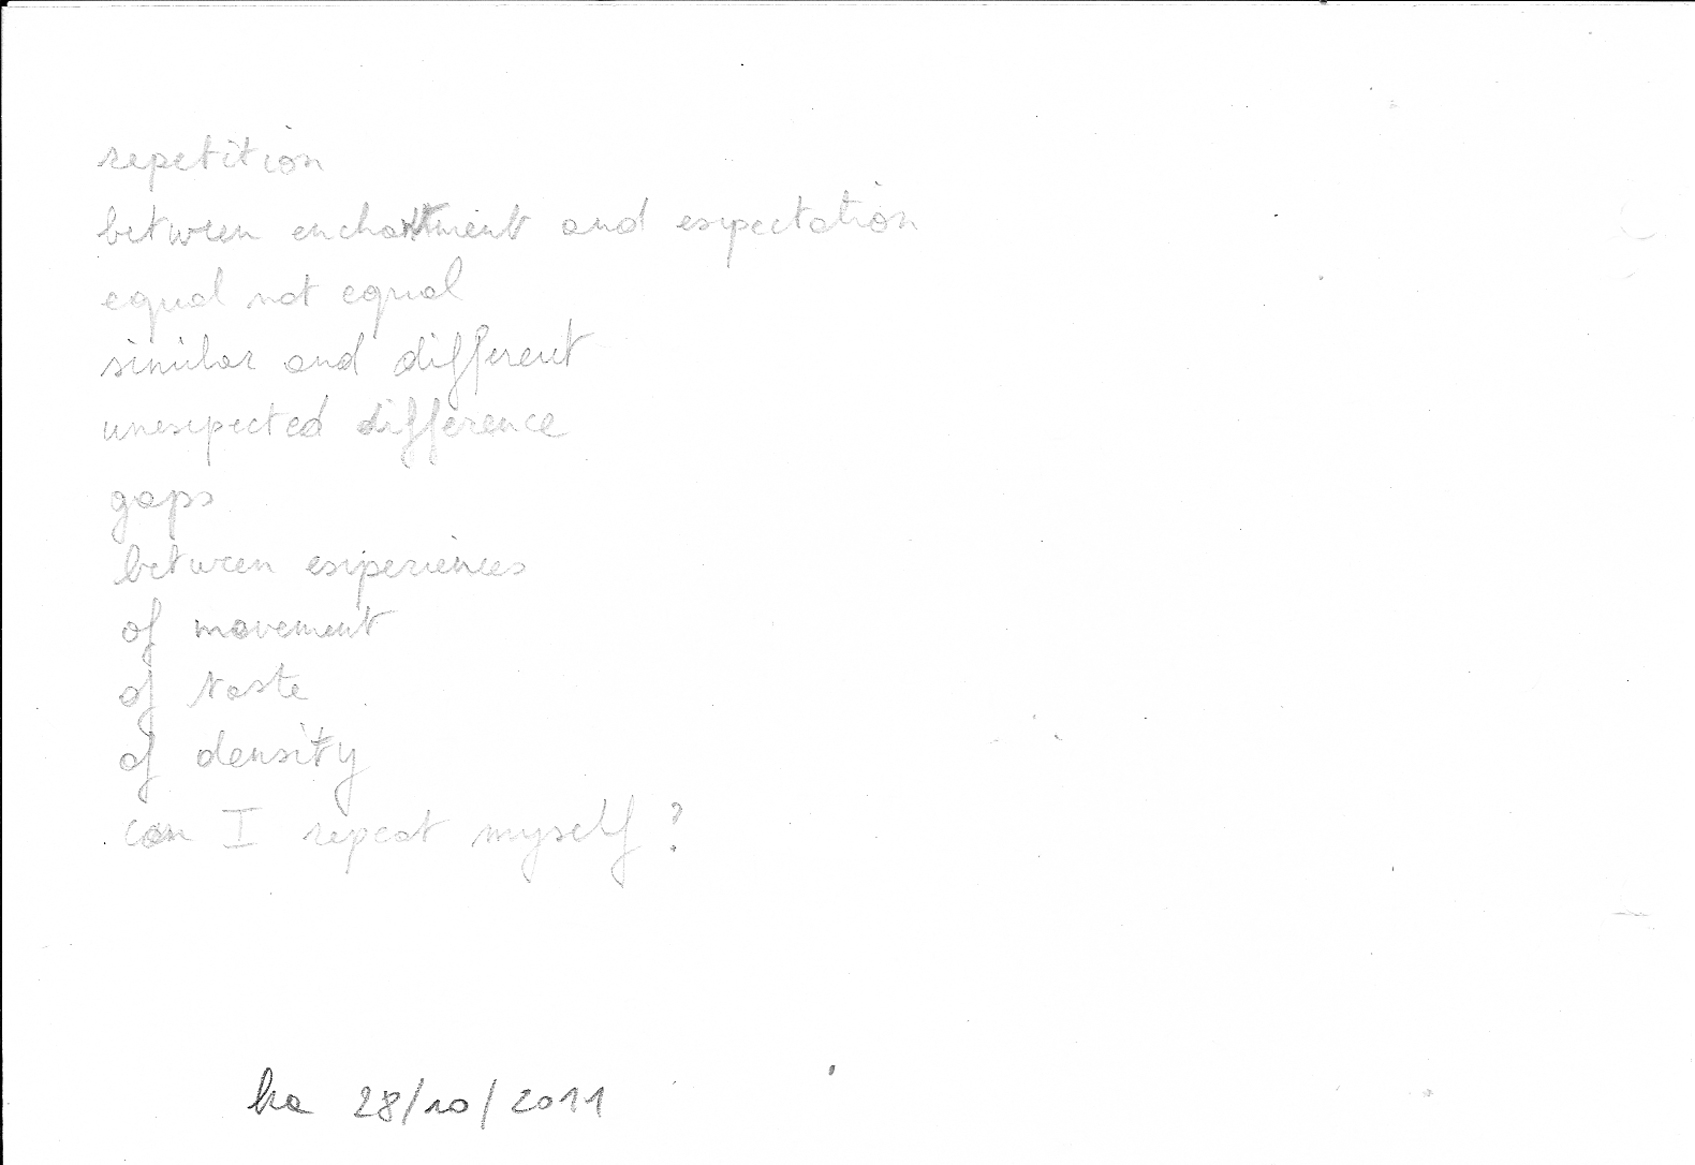 repetition
between enchantment and expectation
equal not equal
similar and different
unexpected difference
gaps
between experiences
of movement
of taste
of density
can I repeat myself?
ha 28/10/2011